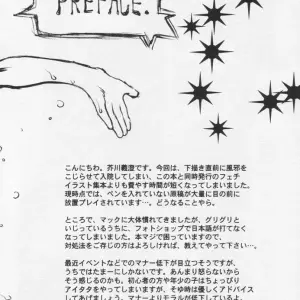 PREFACE.
こんにちわ。芥川義澄です。今回は、下描き直前に風邪を
こじらせて入院してしまい、この本と同時発行のフェチ
イラスト集本よりも費やす時間が短くなってしまいました。
現時点では、ペンを入れていない原稿が大量に目の前に
放置プレイされています…。どうなることやら。
ところで、マックに大体慣れてきましたが、グリグリと
いじっているうちに、フォトショップで日本語が打てなく
なってしまいました。本マジで困っていますので、
対処法をご存じの方はよろしければ、教えてやって下さい…。
最近イベントなどでのマナー低下が目立つそうですが、
うちではたまーにしかないです。あんまり怒らないから
そう感じるのかも。初心者の方や年少の子はちょっぴり
アイタタをやってしまいますが、その時は優しくアドバイス
してあげましょう。マナーよりモラルが低下しているよ、